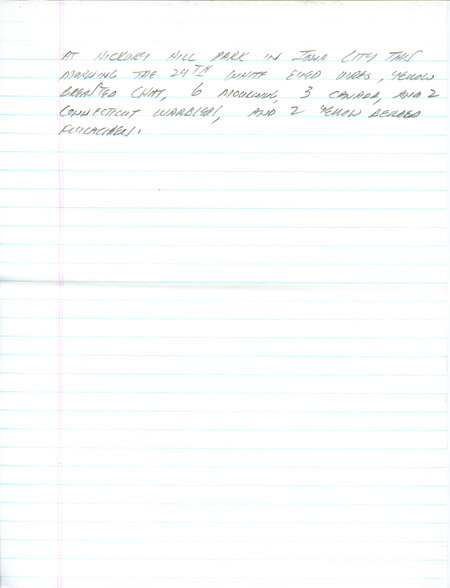 AT HICKORY HILL PARK IN IOWA CITY THIS
MORNING THE 24TH WHITE EYED VIREO, YELLOW
BREASTED CHAT, 6 MOURNING, 3 CANADA, AND 2
CONNECTICUT WARBLERS, AND 2 YELLOW BELLIED
FLYCATCHERS.